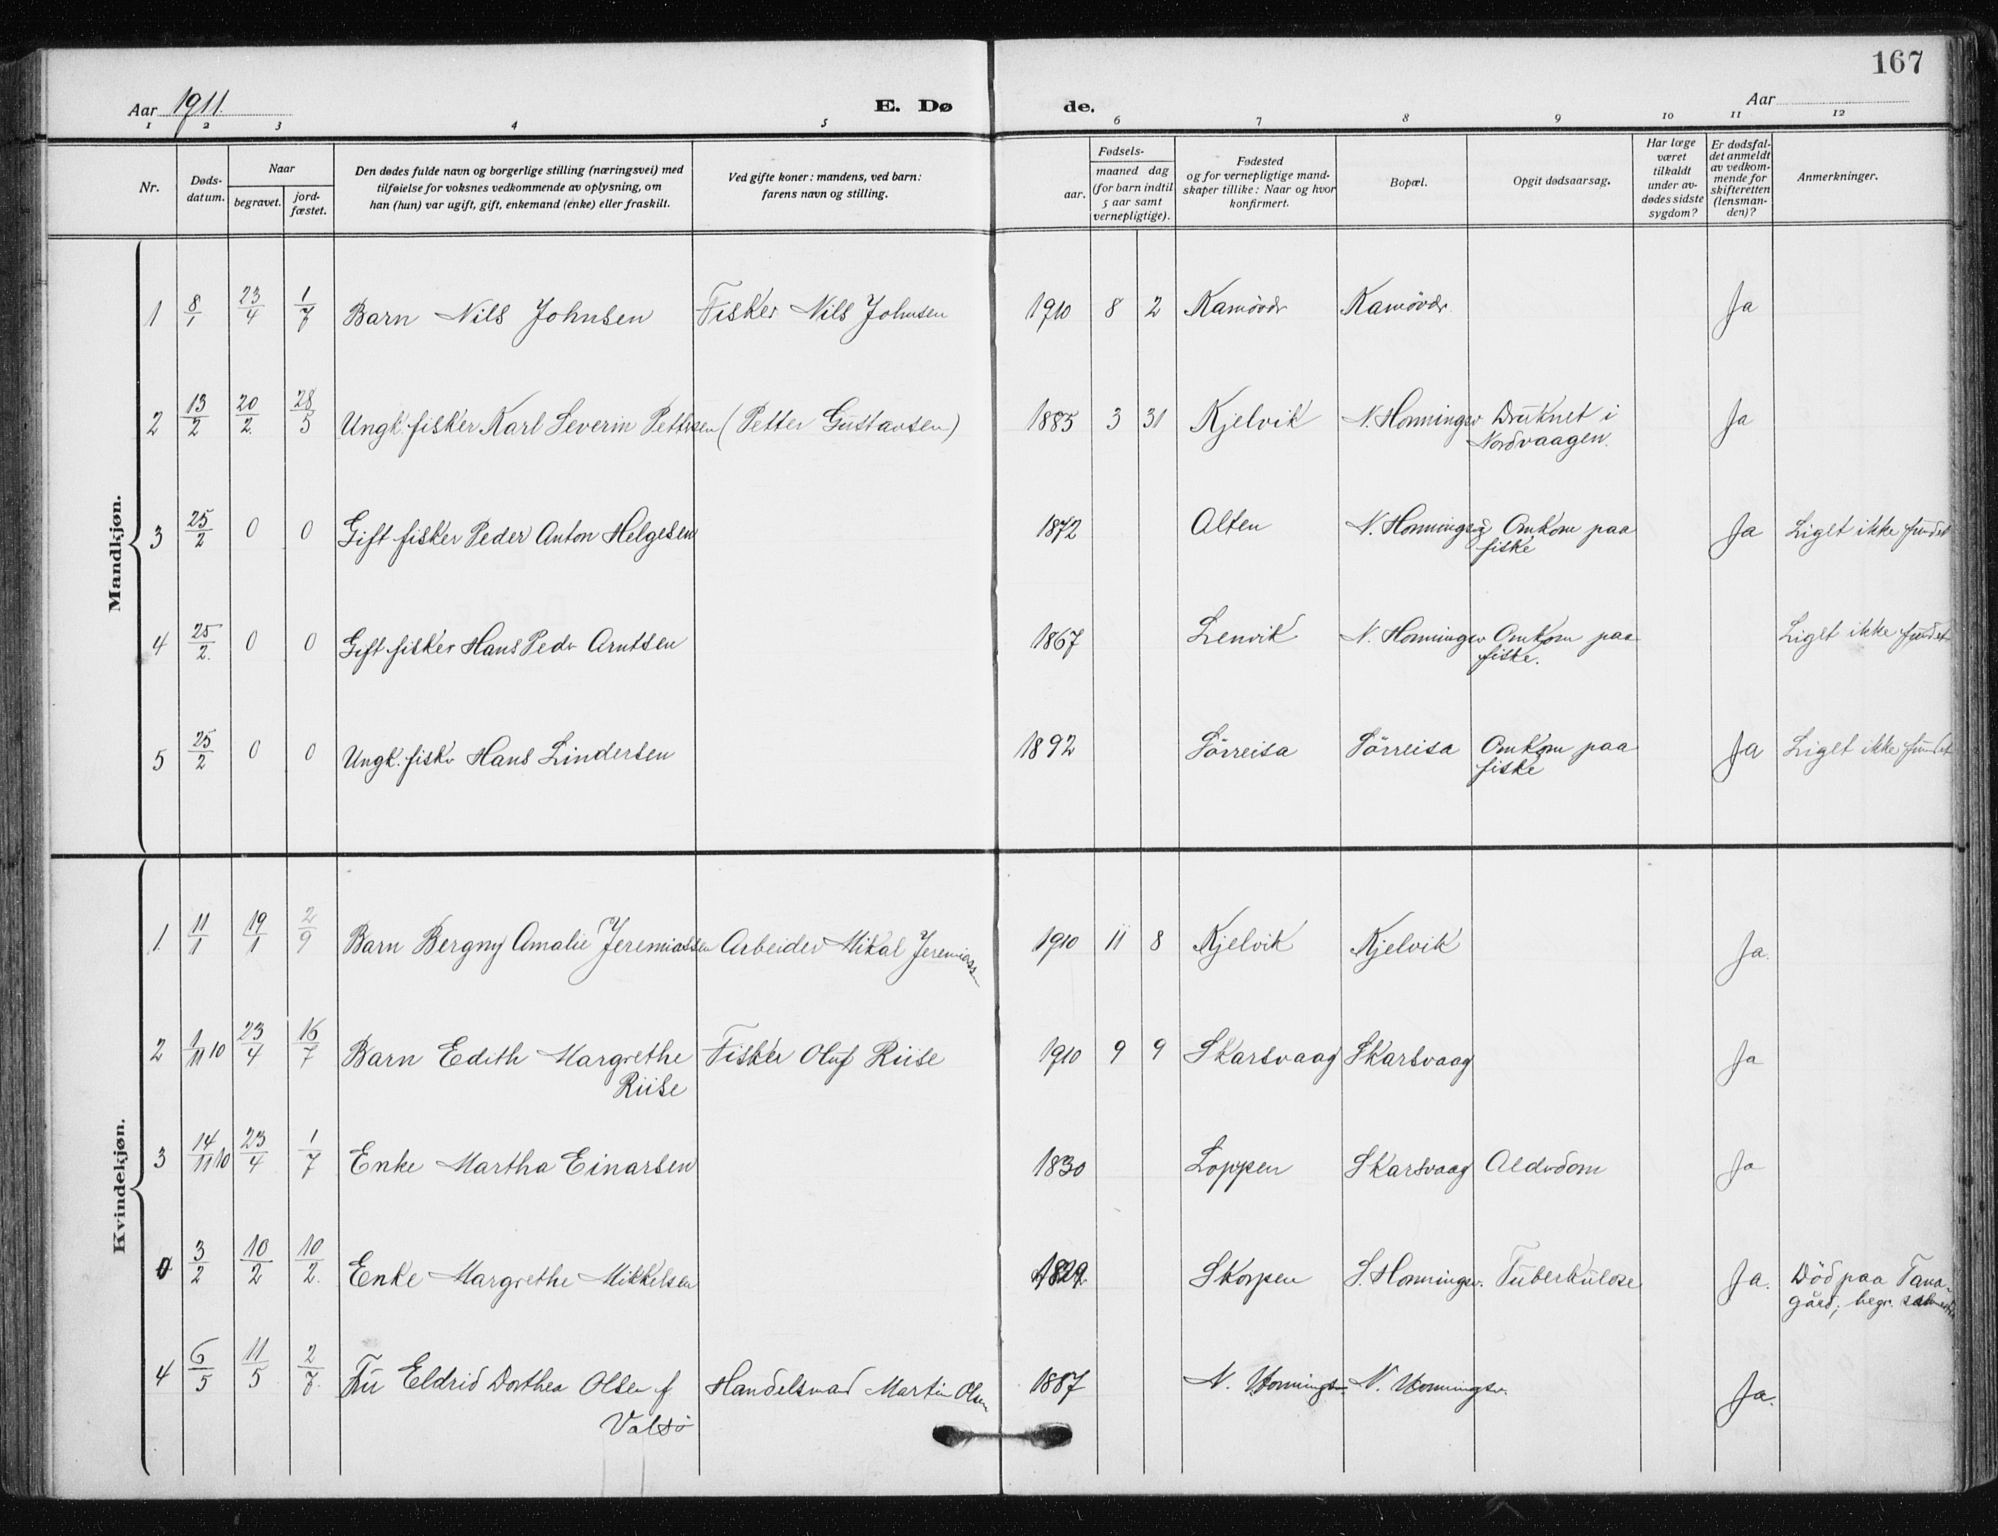 167
Aar 1911. E. Dø de. Aar
1 2 3 4 5 6 7 8 9 10 11 12
Nr. Dødsdatum. Naar begravet. jordfæstet. Den dødes fulde navn og borgerlige stilling (næringsvei) med tilføielse for voksnes vedkommende av oplysning, om han (hun) var ugift, gift, enkemand (enke) eller fraskilt. Ved gifte koner: mandens, ved barn: farens navn og stilling. Fødsels- aar. maaned dag (for barn indtil 5 aar samt vernepligtige). Fødested og for vernepligtige mandskaper tillike: Naar og hvor konfirmert. Bopæl. Opgit dødsaarsag. Har læge været tilkaldt under avdødes sidste sygdom? Er dødsfaldet anmeldt av vedkommende for skifteretten (lensmanden)? Anmerkninger.
Mandkjøn.
1 8/1 23/4 1/7 Barn Nils Johnsen Fisker Nils Johnsen 1910 8 2 Kamövær Kamövær Ja
2 13/2 20/2 28/5 Ungk. fisker Karl Severin Pettersen (Petter Gustavsen) 1885 3 31 Kjelvik N. Honningsv Druknet i
Nordvaagen.
Ja
3 25/2 0 0 Gift fisker Peder Anton Helgesen 1872 Alten N. Honningsvg Omkom paa
fiske
Ja Liget ikke fundet
4 25/2 0 0 Gift fisker Hans Peder Arntsen 1867 Lenvik N. Honningsv Omkom paa
fiske.
Liget ikke fundet
5 25/2 0 0 Ungk. fisker Hans Lindersen 1892 Sörreisa Sörreisa Omkom paa
fiske
Ja Liget ikke fundet
Kvindekjøn.
1 11/1 19/1 2/9 Barn Bergny Amalie Jeremiassen Arbeider Mikal Jeremiassen 1910 11 8 Kjelvik Kjelvik Ja.
2 1/11 10 23/4 16/7 Barn Edith Margrethe Fisker Oluf Riise 1910 9 9 Skarsvaag Skarsvaag Ja
Riise
3 14/11 10 23/4 1/7 Enke Martha Einarsen 1830 Loppen Skarsvaag Alderdom Ja
0 3/2 10/2 10/2 Enke Margrethe Mikkelsen 1829 Skorpen S. Honningsv. Tuberkulose Ja. Död paa Tana-
gård; begr.
4 6/5 11/5 2/7 Fru Eldrid Dorthea Olsen f Handelsmand Martin Olsen 1887 N. Honningsv N. Honningsv. Ja.
Valsö